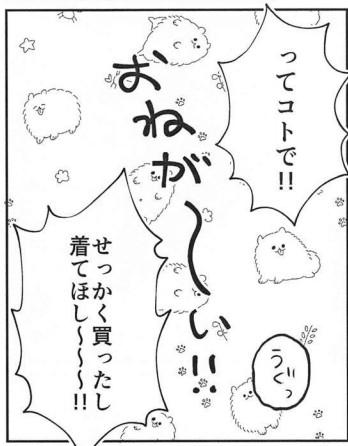 ってコトで!!
おねが〜い!!
せっかく買ったし
着てほし〜〜〜!!
うぐっ